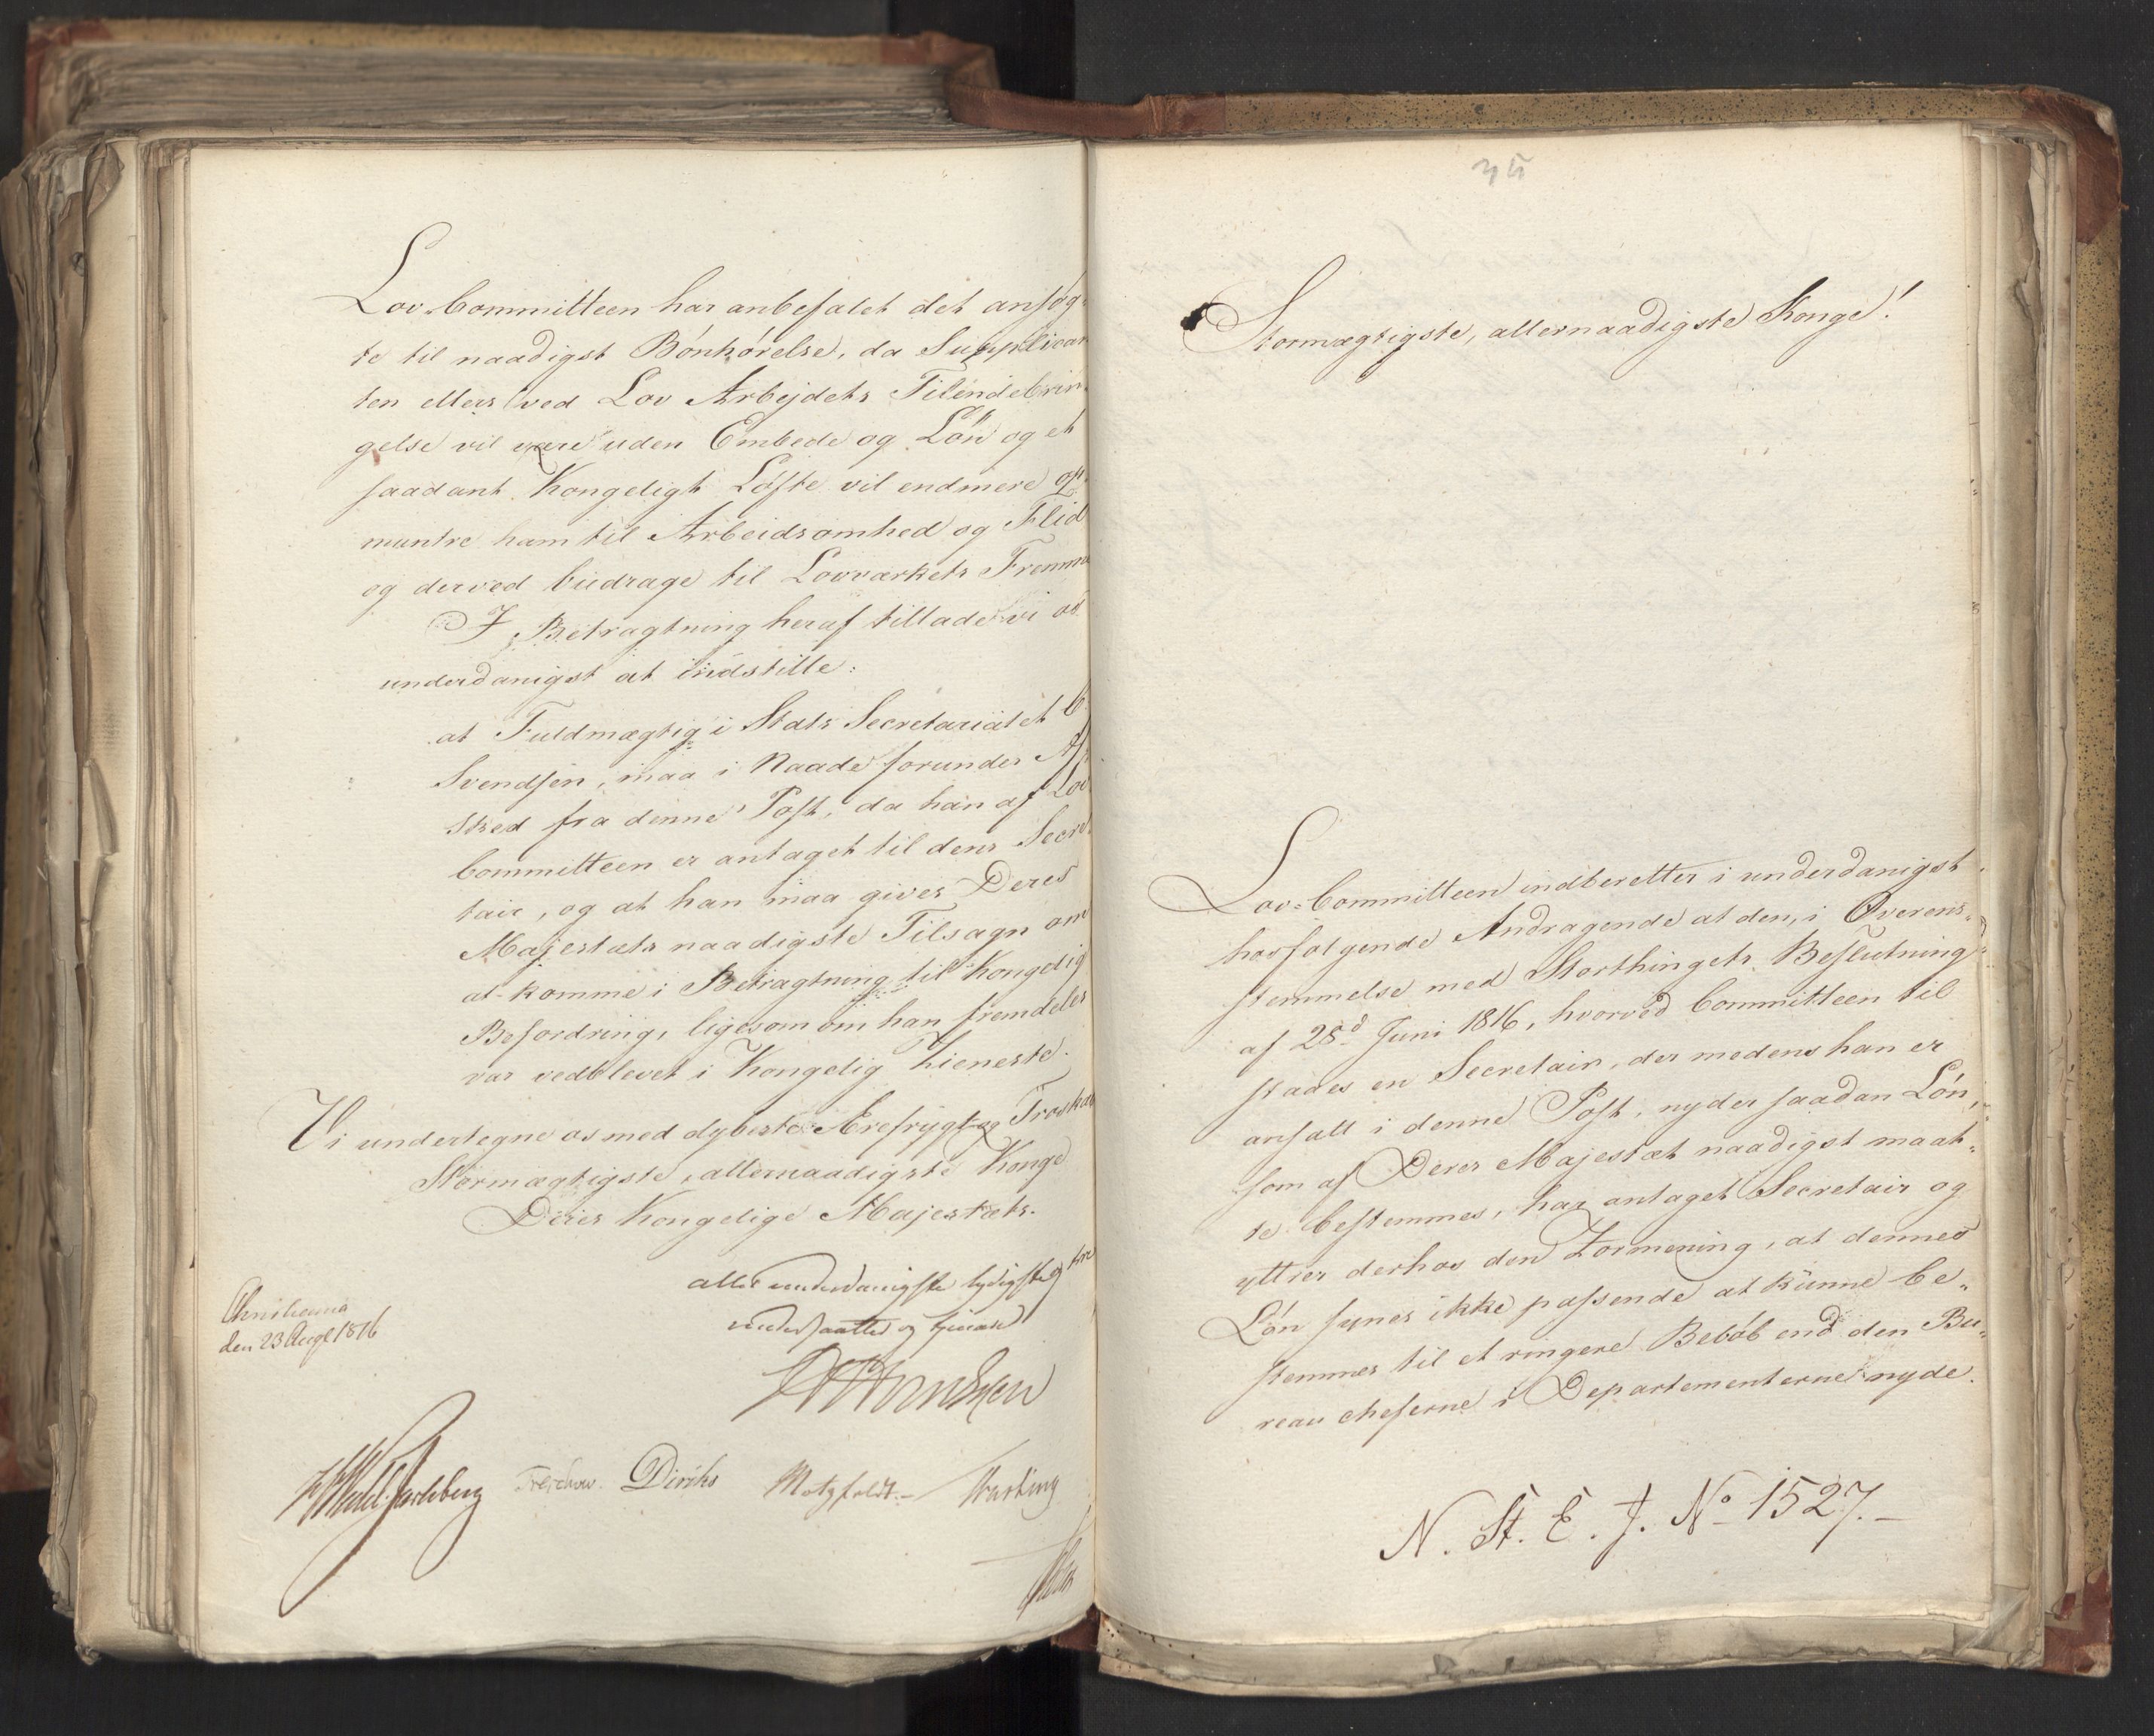 Lov-Committeen har anbefalet det ansøg-
te til naadigst Bönhörelse, da Supplican
ten ellers ved Lov Arbejdets Tilendebrin-
gelse vil være uden Embede og Lön og et
saadant Kongeligt Löfte vil endmere op-
muntre ham til Arbeidsomhed og Flid
og derved biidrage til Lovværkets Fremme
I Betragtning heraf tillade vi os
underdanigst at indstille:
at Fuldmægtig i Stats Secretariatet C.
Svendsen, maa i Naade forundes Af-
sked fra denne Post, da han af Lov
Committeen er antaget til dens Secre-
tair, og at han maa gives Deres
Majestæts naadigste Tilsagn om
at komme i Betragtning til Kongelig
Befordring, ligesom om han fremdeles
var vedblevet i Kongelig Tieneste.
Vi undertegne os med dybeste Ærefrygt og Troskab
Stormægtigste, allernaadigste Konge
Deres Kongelige Majestæts.
aller underdanigste lydigste og
undersaatter og tjenere
Christiania
den 23 Augt 1816
M Wedel Jarlsberg Treschow. Diriks Motzfeldt

35
Stormægtigste, allernaadigste Konge!
Lov-Committeen indberetter i underdanigst
hosfølgende Andragende at den, i Overens-
stemmelse med Storthingets Beslutning
af 28d Juni 1816, hvorved Committeen til
stades en Secretair, der medens han er
ansatt i denne Post, nyder saadan Lön,
som af Deres Majestæt naadigst maat-
te bestemmes, har antaget Secretair og
yttrer derhos den Formening, at dennes
Lön synes ikke passende at kunne be-
stemmes til et ringere Belöb end den Bu-
reau cheferne i Departementerne nyde.
N. St. E. J. No 1527.-